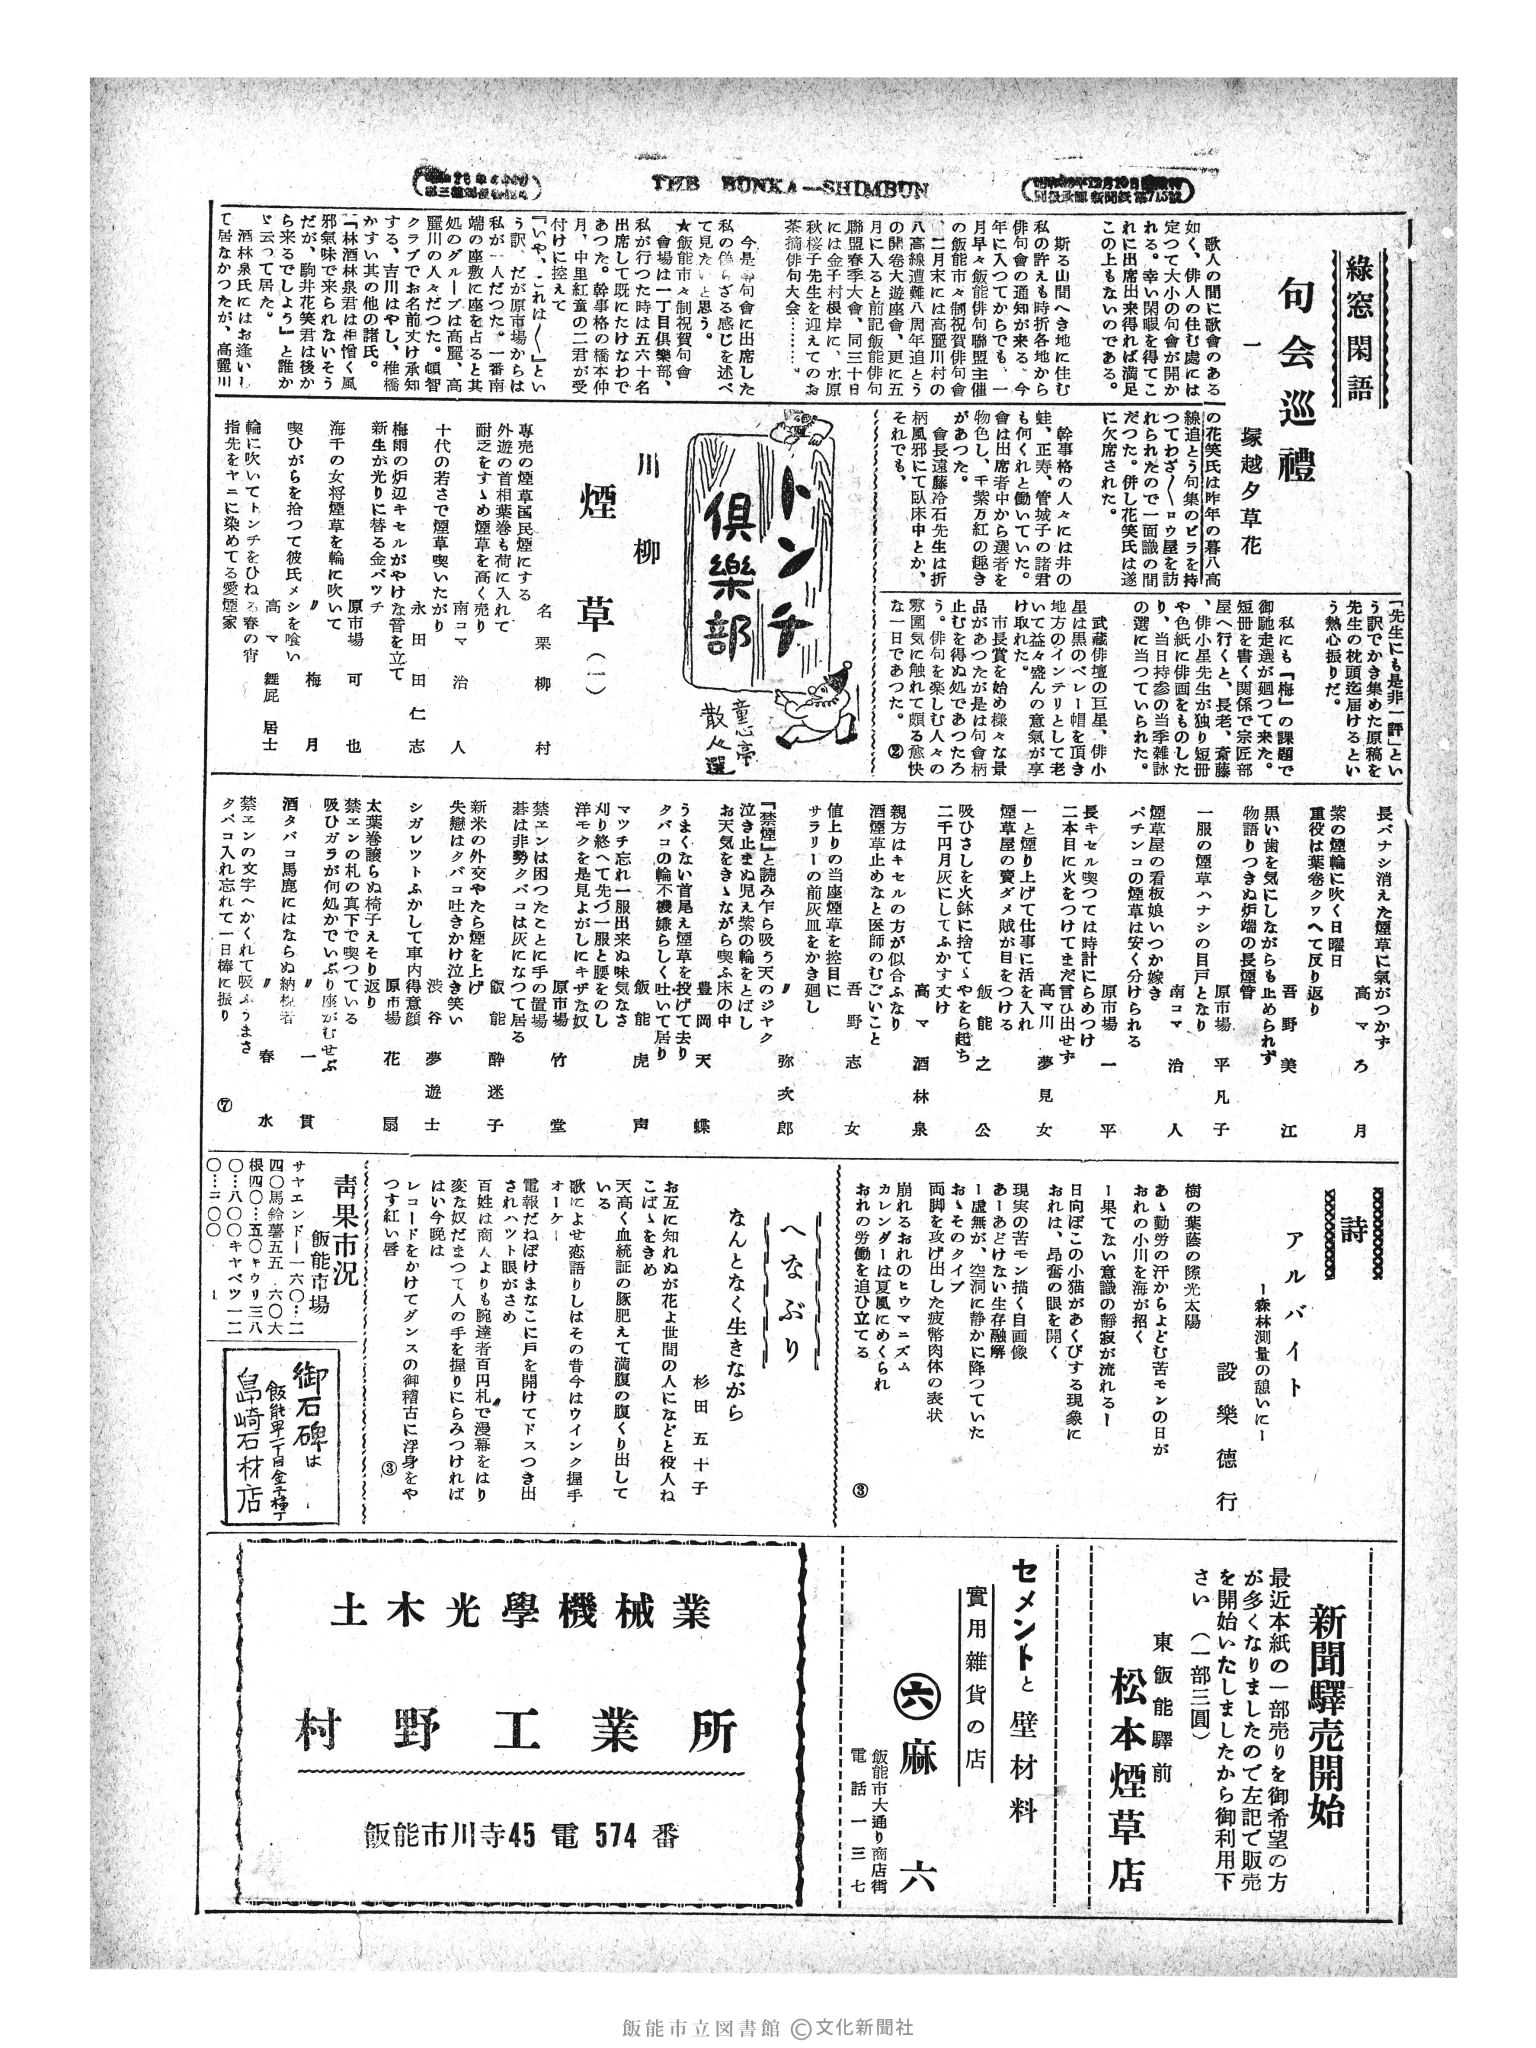 THE BUNKA—SHIMBUN
綠窓閑語
句会巡禮
一
塚越夕草花
歌人の間に歌會のある
如く、俳人の住む處には
定つて大小の句會が開か
れる。幸い閑暇を得てこ
れに出席出来得れば満足
この上もないのである。
斯る山間へき地に住む
私の許えも時折各地から
俳句會の通知が来る。今
年に入つてからでも、一
月早々飯能俳句聯盟主催
の飯能市々制祝賀俳句會
、二月末には高麗川村の
八高線遭難八周年追とう
の開卷大遊座會、更に五
月に入ると前記飯能俳句
聯盟春季大會、同三十日
には金子村根岸に、水原
秋桜子先生を迎えてのお
茶摘俳句大会………。
今是等句會に出席した
私の偽らざる感じを述べ
て見たいと思う。
★飯能市々制祝賀句會
會場は一丁目倶樂部、
私が行つた時は五六十名
出席して既にたけなわで
あつた。幹事格の橋本仲
月、中里紅童の二君が受
付けに控えて
『いや、これは〱』とい
う訳、だが原市場からは
私が一人だつた。一番南
端の座敷に座を占ると其
処のグループは高麗、高
麗川の人々だつた。頓智
クラブでお名前丈け承知
する、吉川はやし、椎橋
かすい其の他の諸氏。
『林酒林泉君は生憎く風
邪氣味で来られないそう
だが、駒井花笑君は後か
ら来るでしよう』と誰か
ゞ云つて居た。
酒林泉氏にはお逢いし
て居なかつたが、高麗川
の花笑氏は昨年の暮八高
線追とう句集のビラを持
つてわざ〱ロウ屋を訪
れられたので一面識の間
だつた。併し花笑氏は遂
に欠席された。
幹事格の人々には井の
蛙、正寿、管城子の諸君
も何くれと働いていた。
會は出席者中から選者を
物色し、千紫万紅の趣き
があつた。
會長遠藤冷石先生は折
柄風邪にて臥床中とか、
それでも、
『先生にも是非一評』とい
う訳でかき集めた原稿を
先生の枕頭迄届けるとい
う熱心振りだ。
私にも『梅』の課題で
御馳走選が廻つて来た。
短冊を書く関係で宗匠部
屋へ行くと、長老、斎藤
俳小星先生が独り短冊
や色紙に俳画をものした
り、当日持参の当季雑詠
の選に当つていられた。
武蔵俳壇の巨星、俳小
星は黒のベレー帽を頂き
地方のインテリとして老
いて益々盛んの意氣が享
け取れた。
市長賞を始め様々な景
品があつたが是は句會柄
止むを得ぬ処であつたろ
う。俳句を楽しむ人々の
雰囲気に触れて頗る愈快
な一日であつた。 ②
トンチ
倶樂部
童心亭
散人選
川柳
煙草（一）
専売の煙草国民煙にする
名栗 柳村
外遊の首相葉巻も荷に入れて
耐乏をすゝめ煙草を高く売り
南コマ 治人
十代の若さで煙草喫いたがり
永田 田仁志
梅雨の炉辺キセルがやけな音を立て
新生が光りに替る金バッチ
原市場 可也
海千の女将煙草を輪に吹いて
〃 梅月
喫ひがらを拾つて彼氏メシを喰い
高マ 舞屁居士
輪に吹いてトンチをひねる春の宵
指先をヤニに染めてる愛煙家
高マ ろ月
長バナシ消えた煙草に氣がつかず
紫の煙輪に吹く日曜日
重役は葉巻クワヘて反り返り
吾野 美江
黒い歯を気にしながらも止められず
物語りつきぬ炉端の長煙管
原市場 平凡子
一服の煙草ハナシの目戸となり
南コマ 治人
煙草屋の看板娘いつか嫁き
パチンコの煙草は安く分けられる
原市場 一平
長キセル喫つては時計にらめつけ
二本目に火をつけてまだ言ひ出せず
高マ川 夢見女
一と煙り上げて仕事に活を入れ
煙草屋の賣ダメ賊が目をつける
飯能 之公
吸ひさしを火鉢に捨てゝやをら起ち
二千円月灰にしてふかす丈け
高マ 酒林泉
親方はキセルの方が似合ふなり
酒煙草止めなと医師のむごいこと
吾野 志女
値上りの当座煙草を控目に
サラリーの前灰皿をかき廻し
〃 弥次郎
『禁煙』と読み乍ら吸う天のジャク
泣き止まぬ児え紫の輪をとばし
お天気をきゝながら喫ふ床の中
豊岡 天蝶
うまくない首尾え煙草を投げて去り
タバコの輪不機嫌らしく吐いて居り
飯能 虎声
マッチ忘れ一服出来ぬ味気なさ
刈り終へて先づ一服と腰をのし
洋モクを是見よがしにキザな奴
原市場 竹堂
禁エンは困つたことに手の置場
碁は非勢タバコは灰になつて居る
飯能 酔迷子
新米の外交やたら煙を上げ
失戀はタバコ吐きかけ泣き笑い
渋谷 夢遊士
シガレットふかして車内得意顔
原市場 花扇
太葉巻譲らぬ椅子えそり返り
禁エンの札の真下で喫つている
吸ひガラが何処かでいぶり座がむせぶ
〃 一貫
酒タバコ馬鹿にはならぬ納税者
〃 春水
禁エンの文字へかくれて吸ふうまさ
タバコ入れ忘れて一日棒に振り
⑦
詩
アルバイト
ー森林測量の憩いにー
設樂德行
樹の葉蔭の隙光太陽
あゝ勤労の汗からよどむ苦モンの日が
おれの小川を海が招く
ー果てない意識の靜寂が流れるー
日向ぼこの小猫があくびする現象に
おれは、昂奮の眼を開く
現実の苦モン描く自画像
あーあどけない生存融解
ー虚無が、空洞に静かに降つていた
おゝそのタイプ
両脚を攻げ出した疲幣肉体の表状
崩れるおれのヒウマニズム
カレンダーは夏風にめくられ
おれの労働を追ひ立てる
③
へなぶり
なんとなく生きながら
杉田五十子
お互に知れぬが花よ世間の人になどと役人ね
こばゝをきめ
天高く血統証の豚肥えて満腹の腹くり出して
いる
歌によせ恋語りしはその昔今はウインク握手
オーケー
電報だねぼけまなこに戸を開けてドスつき出
されハット眼がさめ
百姓は商人よりも腕達者百円札で漫幕をはり
変な奴だまつて人の手を握りにらみつければ
はい今晩は
レコードをかけてダンスの御稽古に浮身をや
つす紅い唇
③
靑果市況
飯能市場
サヤエンドー一六〇…二
四〇馬鈴薯五五…六〇大
根四〇…五〇キウリ三八
〇…八〇〇キヤベツ一二
〇…二〇〇
御石碑は
島崎石材店
新聞驛売開始
最近本紙の一部売りを御希望の方
が多くなりましたので左記で販売
を開始いたしましたから御利用下
さい（一部三圓）
東飯能驛前
松本煙草店
セメントと壁材料
實用雑貨の店
㊅麻六
飯能市大通り商店街
電話一三七
土木光學機械業
村野工業所
飯能市川寺45 電 574 番
飯能市立図書館 ©文化新聞社